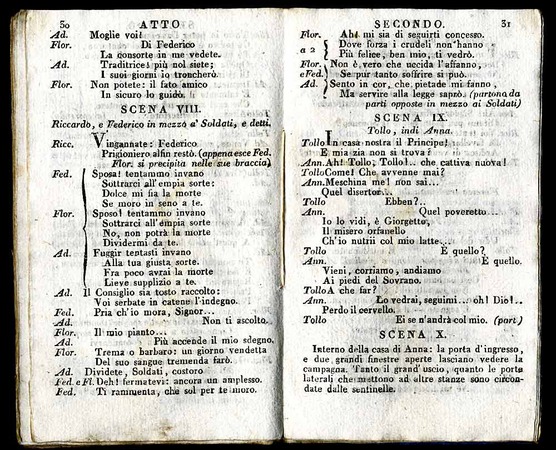 50
ATTO
Ad. Moglie voi!
Flor. Di Federico
La consorte in me vedete.
Ad. Traditrice! più nol siete;
I suoi giorni io troncherò.
Flor. Non potete: il fato amico
In sicuro lo guidò.
SCENA VIII.
Riccardo, e Federico in mezzo a' Soldati, e detti.
Ricc. Vingannate: Federico
Prigioniero alfin restò. (appena esce Fed.
Flor. si precipita nelle sue braccia)
Fed. Sposa! tentammo invano
Sottrarci all'empia sorte:
Dolce mi fia la morte
Se moro in seno a te.
Flor. Sposo! tentammo invano
Sottrarci all'empia sorte
No, non potrà la morte
Dividermi da te.
Ad. Fuggir tentasti invano
Alla tua giusta sorte.
Fra poco avrai la morte
Lieve supplizio a te.
Ad. Il Consiglio sia tosto raccolto:
Voi serbate in catene l'indegno.
Fed. Pria ch'io mora, Signor...
Ad. Non ti ascolto.
Flor. Il mio pianto...
Ad. Più accende il mio sdegno.
Flor. Trema o barbaro: un giorno vendetta
Del suo sangue tremenda farò.
Ad. Dividete, Soldati, costoro
Fed. e Fl. Deh! fermatevi: ancora un amplesso.
Fed. Ti rammenta, che sol per te moro.
SECONDO.
51
Flor. Ah! mi sia di seguirti concesso.
a 2 Dove forza i crudeli non hanno
Più felice, ben mio, ti vedrò.
Flor. Non è vero che uccida l'affanno,
e Fed. Se pur tanto soffrire si può.
Ad. Sento in cor, che pietade mi fanno,
Ma servire alla legge saprò. (partono da
parti opposte in mezzo ai Soldati)
SCENA IX.
Tollo, indi Anna.
Tollo In casa nostra il Principe!
E mia zia non si trova?
Ann. Ah! Tollo, Tollo!.. che cattiva nuova!
Tollo Come! Che avvenne mai?
Ann. Meschina me! non sai...
Quel disertor...
Tollo Ebben?..
Ann. Quel poveretto...
Io lo vidi, è Giorgetto,
Il misero orfanello
Ch'io nutrii col mio latte...
Tollo E quello?
Ann. E quello.
Vieni, corriamo, andiamo
Ai piedi del Sovrano.
Tollo A che far?
Ann. Lo vedrai, seguimi... oh! Dio!..
Perdo il cervello.
Tollo Ei se n'andrà col mio. (part.)
SCENA X.
Interno della casa di Anna: la porta d'ingresso,
e due grandi finestre aperte lasciano vedere la
campagna. Tanto il grand'uscio, quanto le porte
laterali che mettono ad altre stanze sono circon-
date dalle sentinelle.